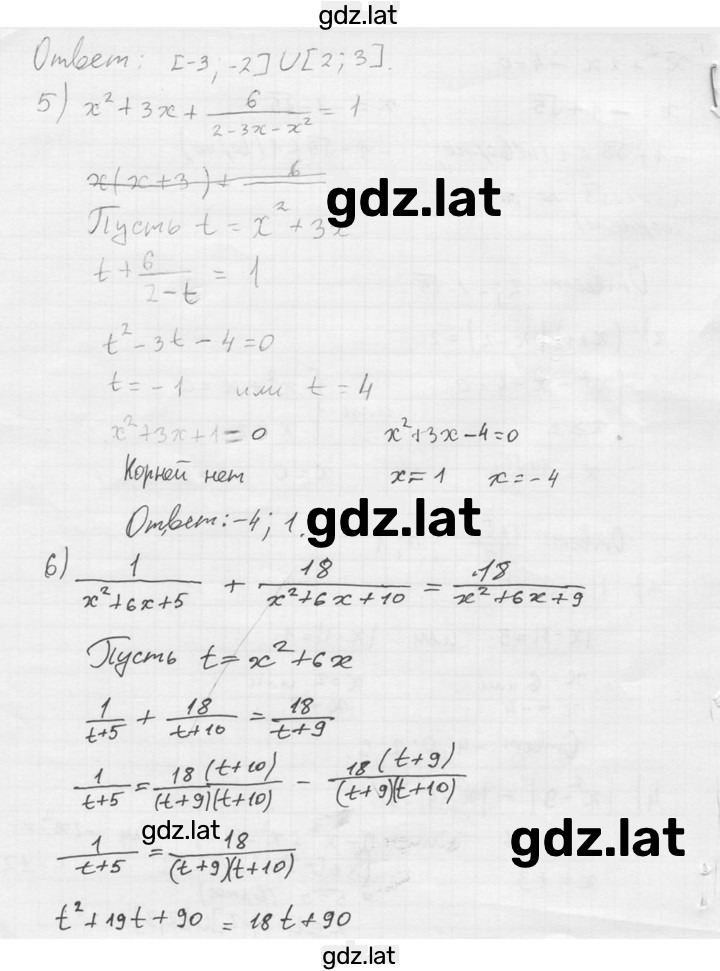 gdz.lat
Ответ: [-3; -2]∪[2; 3].
5) x² + 3x + 6/(2-3x-x²) = 1
x(x+3) + 6
gdz.lat
Пусть t = x² + 3x
t + 6/(2-t) = 1
t² - 3t - 4 = 0
t = -1 или t = 4
x² + 3x + 1 = 0 x² + 3x - 4 = 0
Корней нет x = 1 x = -4
Ответ: -4; 1.
gdz.lat
6) 1/(x²+6x+5) + 18/(x²+6x+10) = 18/(x²+6x+9)
Пусть t = x² + 6x
1/(t+5) + 18/(t+10) = 18/(t+9)
1/(t+5) = 18(t+10)/((t+9)(t+10)) - 18(t+9)/((t+9)(t+10))
gdz.lat
1/(t+5) = 18/((t+9)(t+10))
gdz.lat
t² + 19t + 90 = 18t + 90
gdz.lat